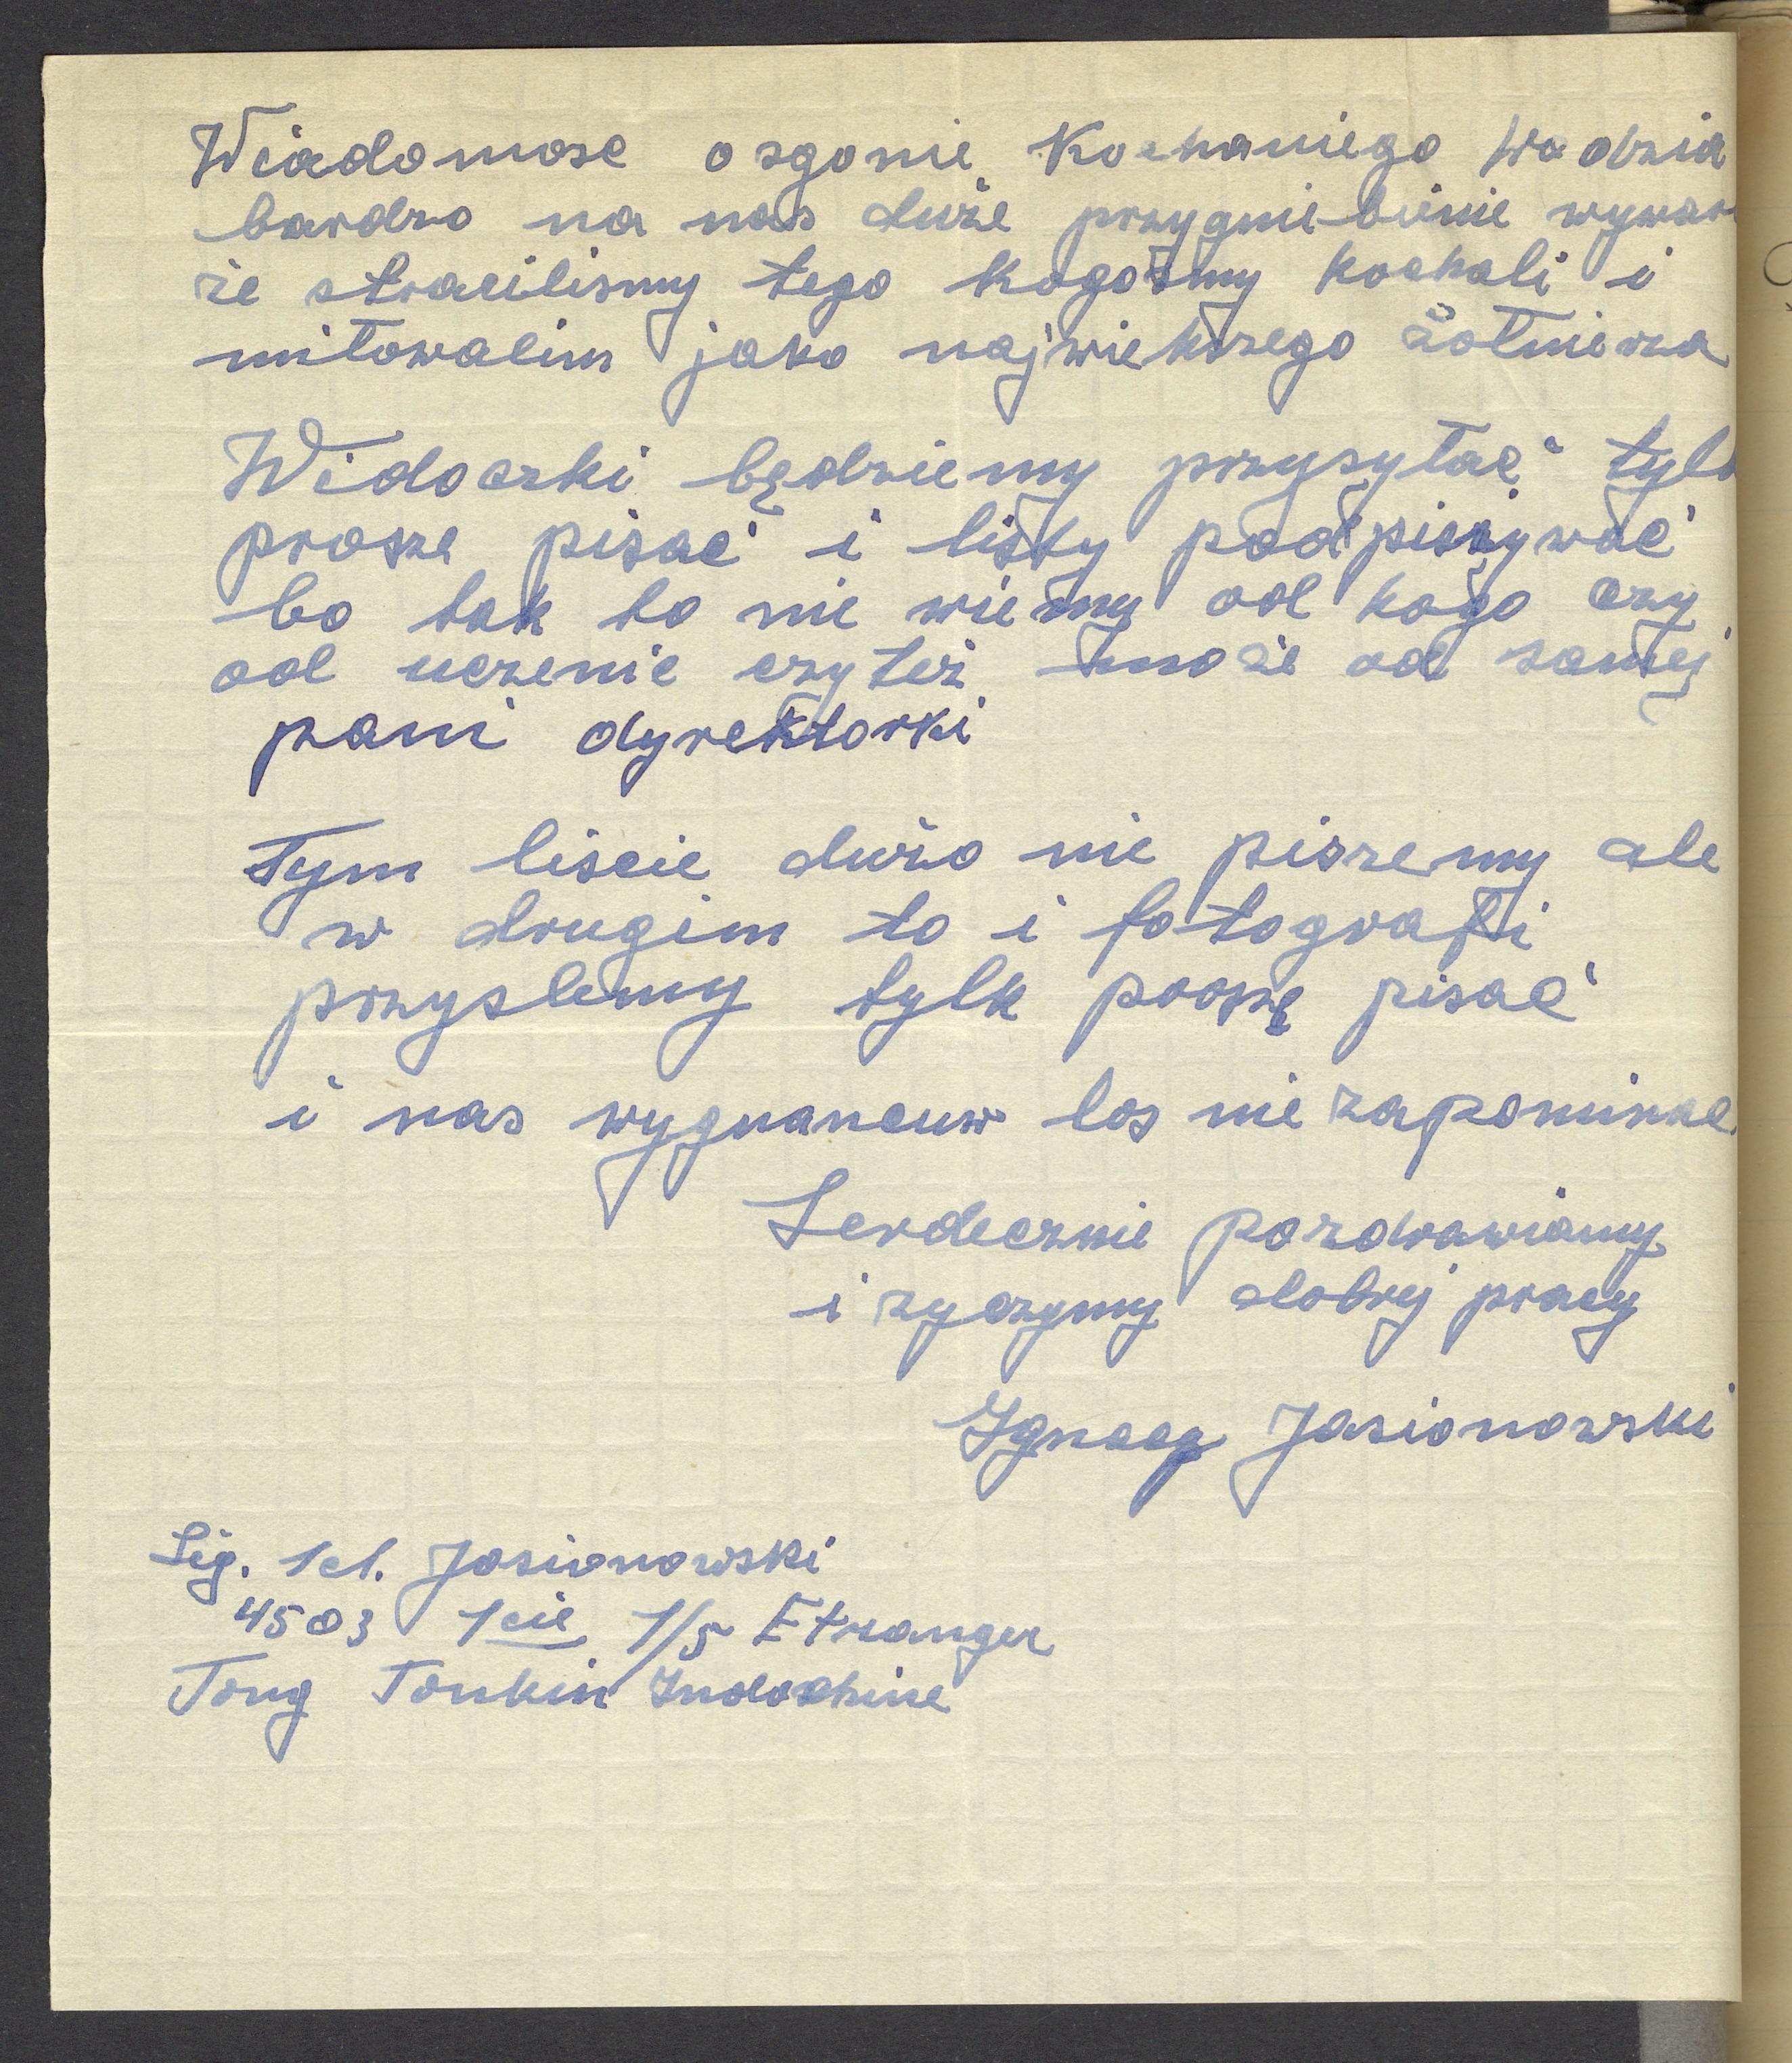 Wiadomose o zgonie Kochaniego Wodzia
bardzo na nas duże przygniebienie wywar
że stracilismy tego kogosmy kochali i
miłowalim jako najwiekszego żołnierza
Widoczki będziemy przysyłać tylk
prosze pisać i listy podpisywać
bo tak to nie wiemy od kogo czy
od uczenic czy też może od samej
pani dyrektorki
Tym liscie dużo nie piszemy ale
w drugim to i fotografi
przyslemy tylk prosze pisać
i nas wygnancuw los nie zapominac
Serdecznie pozdrawiamy
i zyczymy dobrej pracy
Ignacy Jasionowski
Lég. 1cl. Jasionowski
4503 1cie 1/5 Etranger
Tong Tonkin Indochine